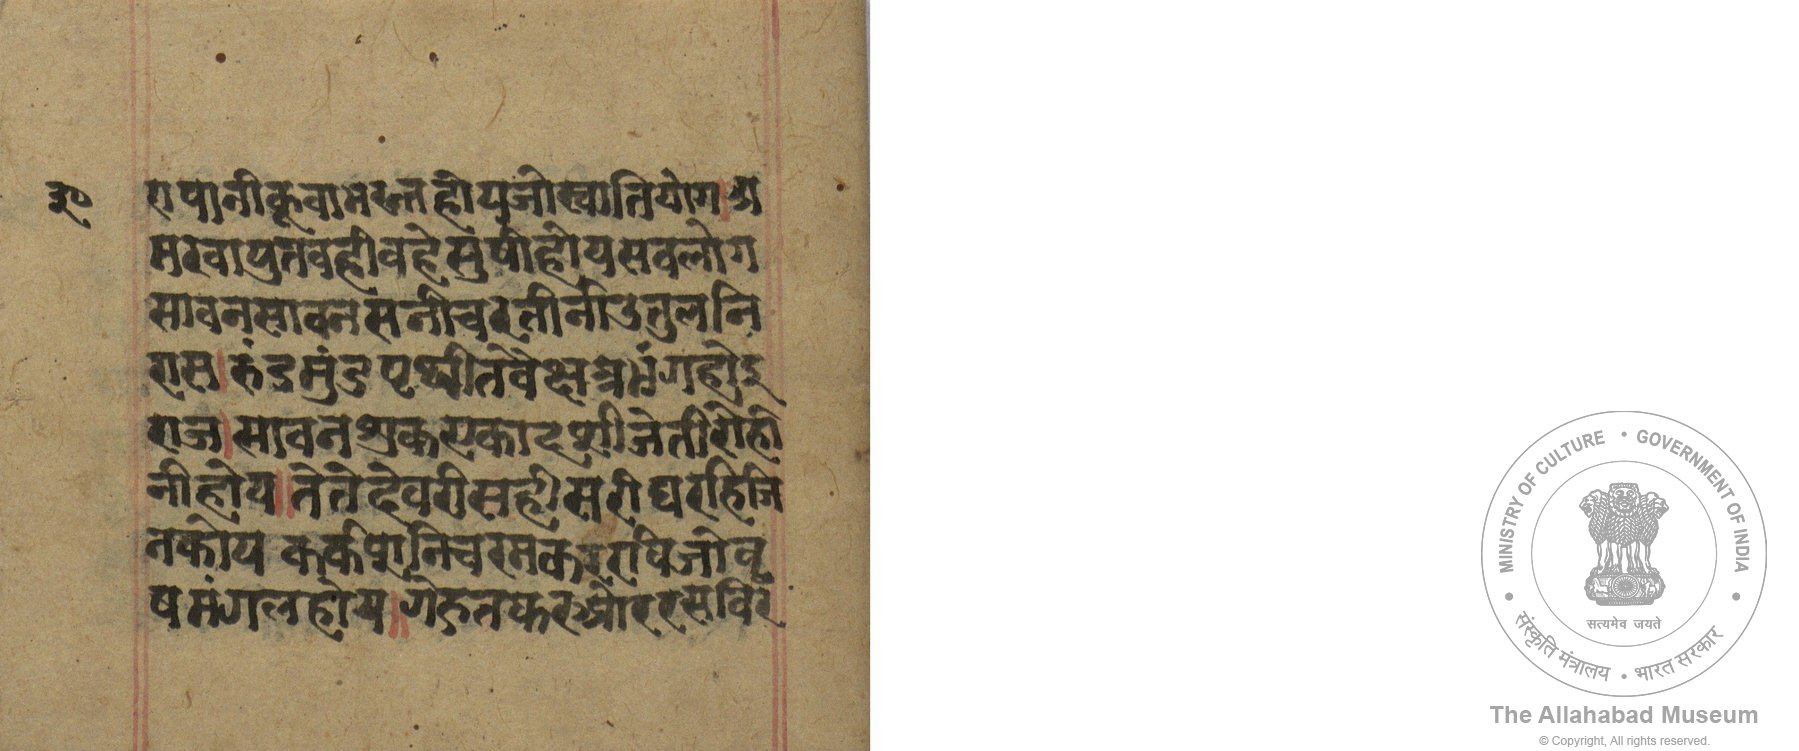 रा षा नी कू वा भ रु न हो य जो स्वा ति यो ग । अ
म र वा यु त व ही व हे सु षी हो य स व लो ग
सा व न सा व न स नी च र ती नी उ तु ल नि
रा स । रुं ड मुं ड पृ थ्वी त वै क्ष त्र भं ग हो इ
रा ज । सा व न शु क ए का द शी जे ती रो ही
नी हो य ॥ ते ते दे व री स ही स री घ र हि जि
न को य क र्क षा नि च र म क र रा षि जो वृ
ष मं ग ल हो य ॥ गे रु त क र औ र र स वि र
MINISTRY OF CULTURE • GOVERNMENT OF INDIA
सत्यमेव जयते
संस्कृति मंत्रालय • भारत सरकार
The Allahabad Museum
© Copyright, All rights reserved.